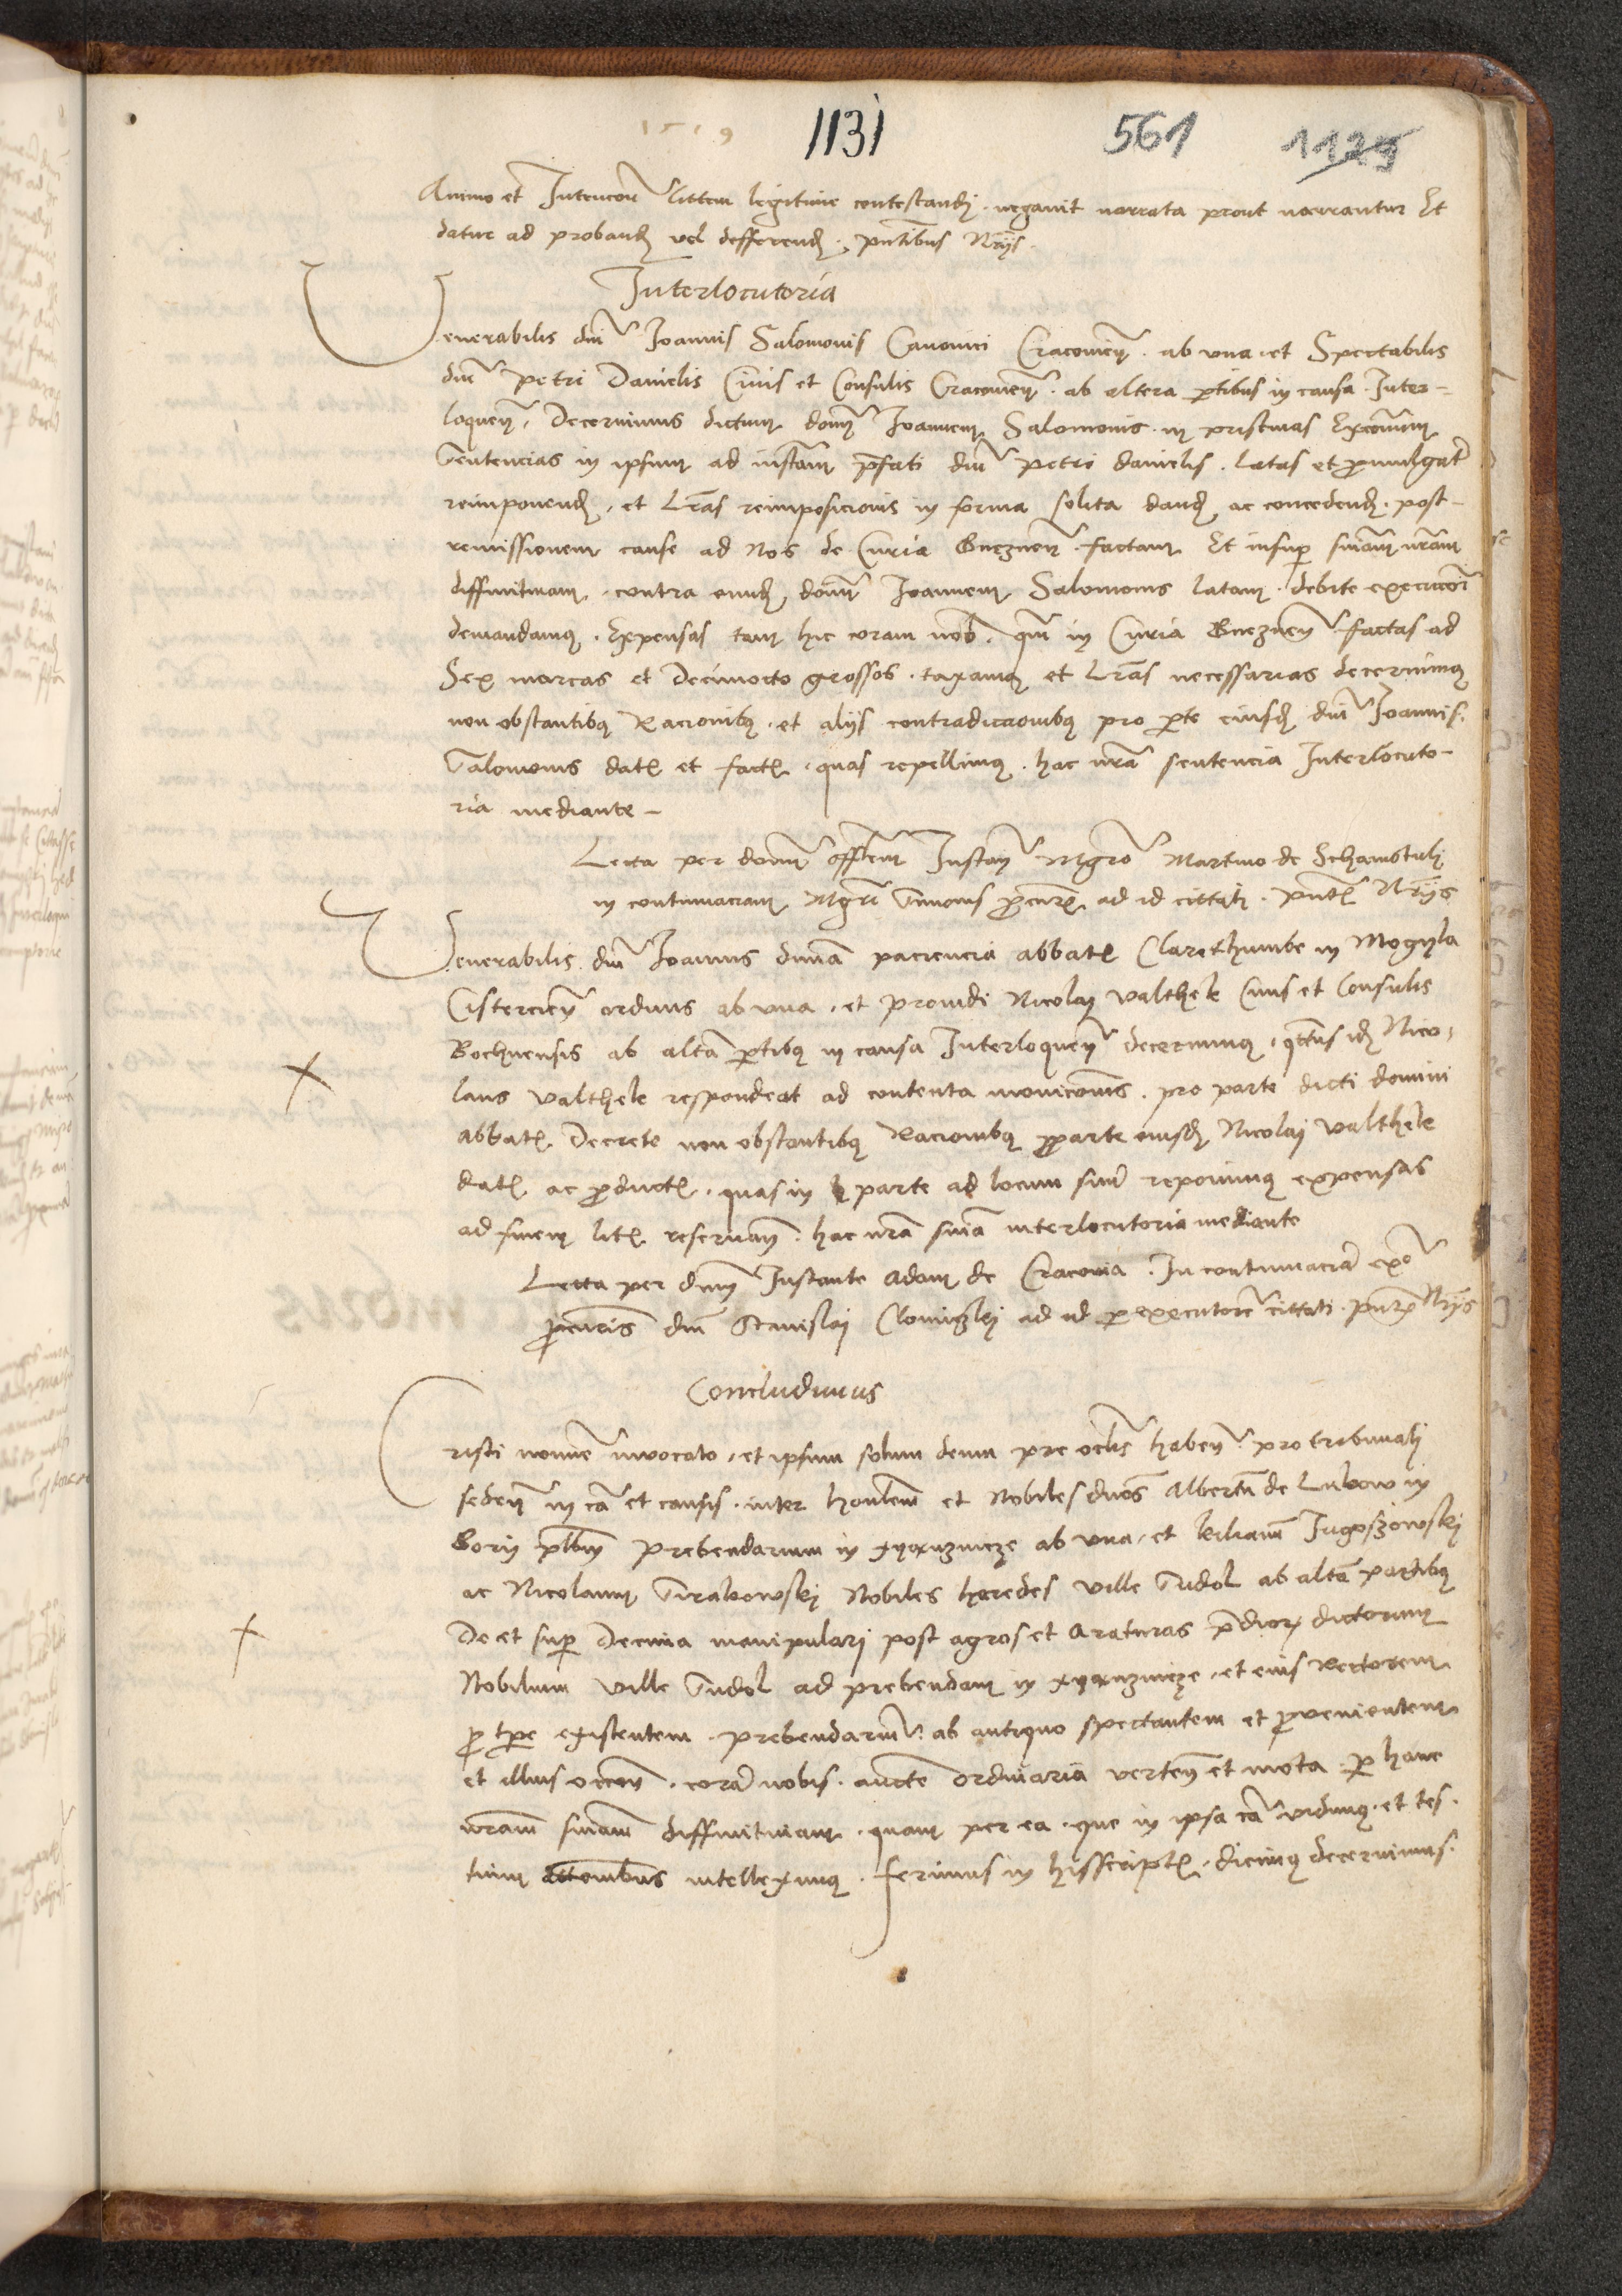 1519 1131 561 1129
Animo et Intencõn littem legitime contestandj . negavit narrata prout narrantur Et
datur ad proband vel defferend . pntibus Nrijs .
Interlocutoria
Venerabilis dni Joannis Salomonis Canonici Cracovien . ab vna . et Spectabilis
dni Petri Danielis Civis et Consulis Cracovien . ab altera ptibus in causa Inter-
loquen . Decernimus dictum domn Joannem Salomonis . in pristinas Excõmun
Sentencias in ipsum ad instam pfati dni Petri danielis . latas et promulgat
reimponend . et Lras reimposicionis in forma solita dand ac concedend . post-
remissionem cause ad Nos de Curia Gneznen factam Et insup sniam nram
diffinitivam . contra eund domn Joannem Salomonis latam . debite execucõi
demandamus . Expensas tam hic coram nob . qm in Curia Gneznen factas ad
Sex marcas et Decimocto grossos . taxamus et Lras necessarias decernimus
non obstantibus Racionibus . et alijs contradiccionibus pro pte eiusd dni Joannis .
Salomonis dat et fact . quas repellimus . hac nra sentencia Interlocuto-
ria mediante -
Lecta per domn offlem Instan Mgro Martino de Schamotulj
in contumaciam Mgri Simonis procur ad id cittati . pnt Nrijs
Venerabilis dni Joannis divina paciencia abbat Claretthumbe in Mogyla
Cistercien ordinis ab vna . et providi Nicolaj Valthek Civis et Consulis
Bochnensis ab alta ptibus in causa Interloquen decernimus . qtus id Nico-
laus Valthek respondeat ad contenta monicõnis . pro parte dicti domini
abbat Decrete non obstantibus Racionibus pparte eiusd Nicolaj Valthek
dat ac product . quas in h parte ad locum suu reponimus expensas
ad finem lit reservan . hac nra snia interlocutoria mediante
Lecta per dnm Instante Adam de Cracovia . In contumacia
procuris dni Stanislaj ad id p executore cittati . pnt Nrijs
Concludimus
Cristi nomine invocato . et ipsum solum deum pre oclis haben . pro tribunalj
seden in ca et causis . inter honlem et Nobiles dnos Albertu de Lukow in
Gory plbm prebendarium in Xyaznicze ab vna . et kilianu Jugoszowskj
ac Nicolaum Nobiles heredes ville Sudol ab alta partibus
De et sup Decima manipularj post agros et Araturas pdior dictorum
Nobilium ville Sudol ad prebendam in Xyaznicze . et eius Rectorem
p tpe existentem . prebendariu . ab antiquo spectantem et provenientem
et illius occon . cora nobis . aucte ordinaria verten et mota . p hanc
nram sniam diffinitivam . quam per ea . que in ipsa ca vidimus . et tes-
tium attõnibus intelleximus . ferimus in hisscript . dicimus decernimus .